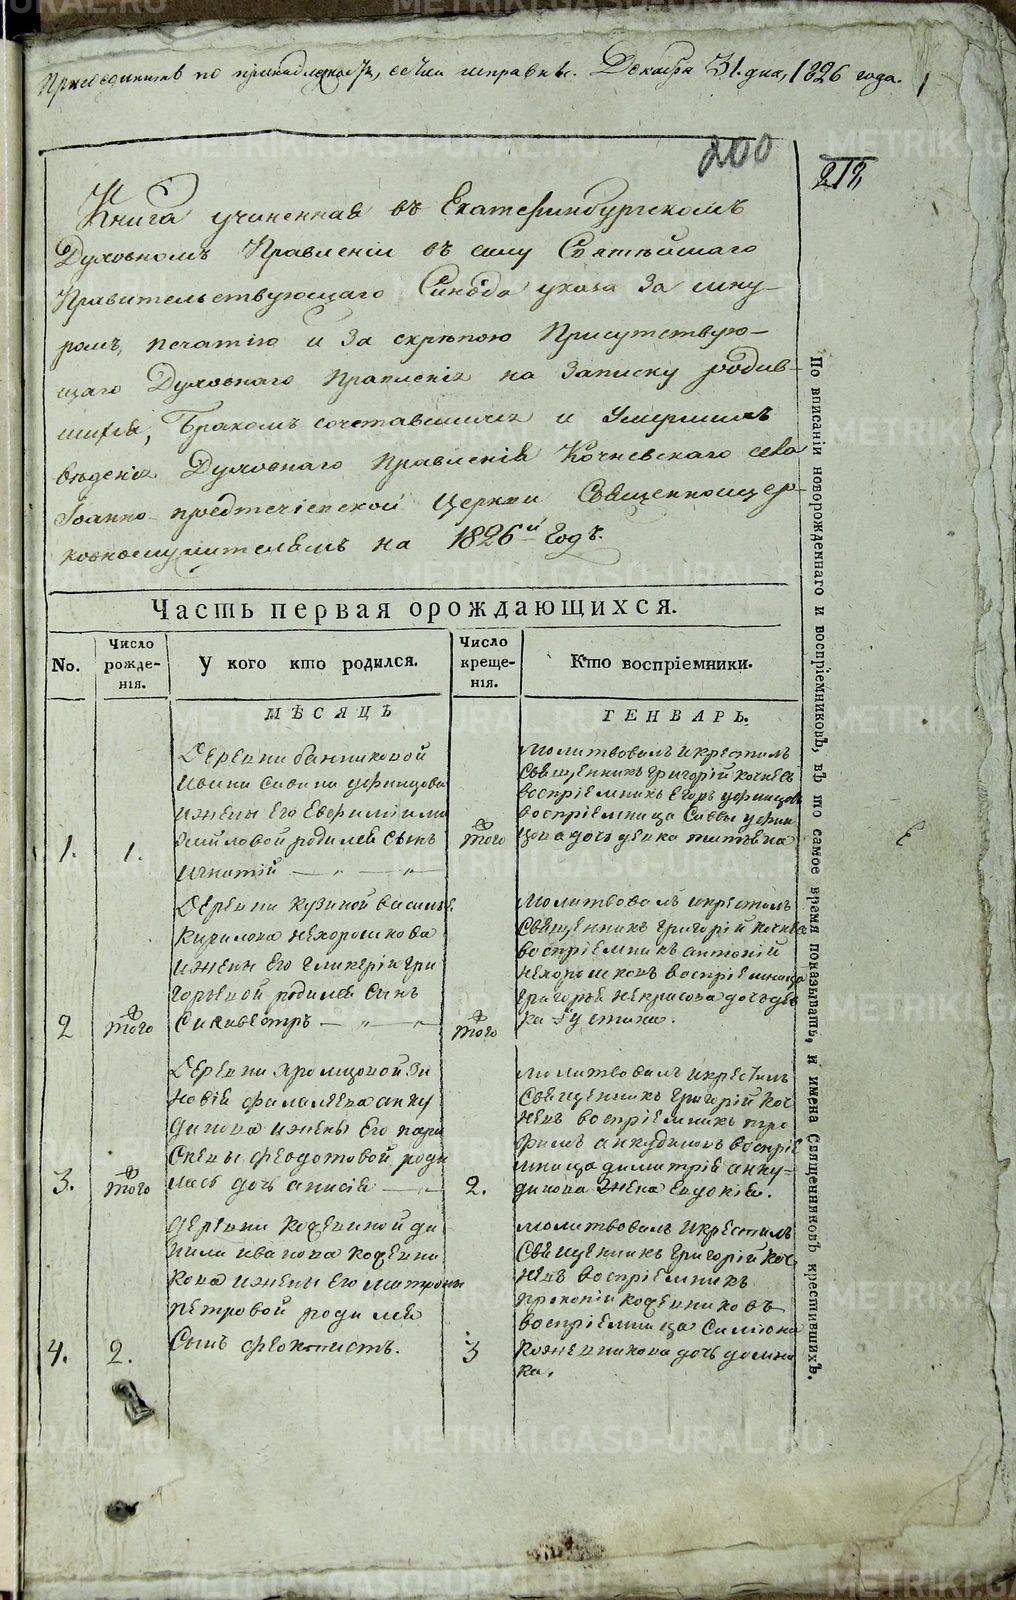 Декабря 31. дня, 1826 года.
200
212
Книга учиненная въ Екатеринбургскомъ
Духовномъ Правленіи въ силу Святѣйшаго
Правительствующаго Синода указа За шну-
ромъ, печатію и За скрѣпою Присутствую-
щаго Духовнаго Правленія на Записку родив-
шихся, Бракомъ сочетавшихся и Умершихъ
вѣденія Духовнаго Правленія Кочневскаго села
Іоанно-предтечіевской Церкви Священноцер-
ковнослужителямъ на 1826й Годъ.
Часть первая орождающихся.
No.
Число рожде-нія.
У кого кто родился.
Число креще-нія.
Кто воспріемники.
МѢСЯЦЪ
ГЕНВАРЬ.
1.
1.
Деревни банниковой
ивана савина уфинцова
ижены Его Евфиміи ми
хайловой родился сынъ
игнатій
того
молитвовалъ и крестилъ
Священникъ григорій кочневъ
воспріемникъ Егоръ уфинцовъ
воспріемница Саввы уфин
цова дочь девка татьяна
2
того
Деревни кузиной василья
Кирилова нехорошкова
ижены Его гликеріи гри
горьевой родился сынъ
Силивестръ
того
молитвовалъ икрестилъ
Священникъ григорій кочневъ
воспріемникъ антоній
нехорошковъ воспріемница
григорья некрасова дочь дев
ка устина.
3.
того
Деревни Хромцовой Зи
новія филалеева анку
динова ижены Его пара
скевы феодотовой роди
лась дочь анисія
2.
молитвовалъ икрестилъ
Священникъ григорій коч
невъ воспріемникъ тро
фимъ анкудиновъ воспріе
мница димитрія анку-
динова Жена Евдокія.
4.
2.
деревни кожевиной да
нила иванова кожевни
кова ижены Его матроны
петровой родился
Сынъ феоктистъ.
3
молитвовалъ икрестилъ
Священникъ григорій коч
невъ воспріемникъ
прокопій кожевниковъ
воспріемница Симіона
кожевникова дочь домни
ка.
По вписаніи новорожденнаго и воспріемниковъ, въ то самое время показывать, и имена Священниковъ крестившихъ.
METRIKI.GASO-URAL.RU